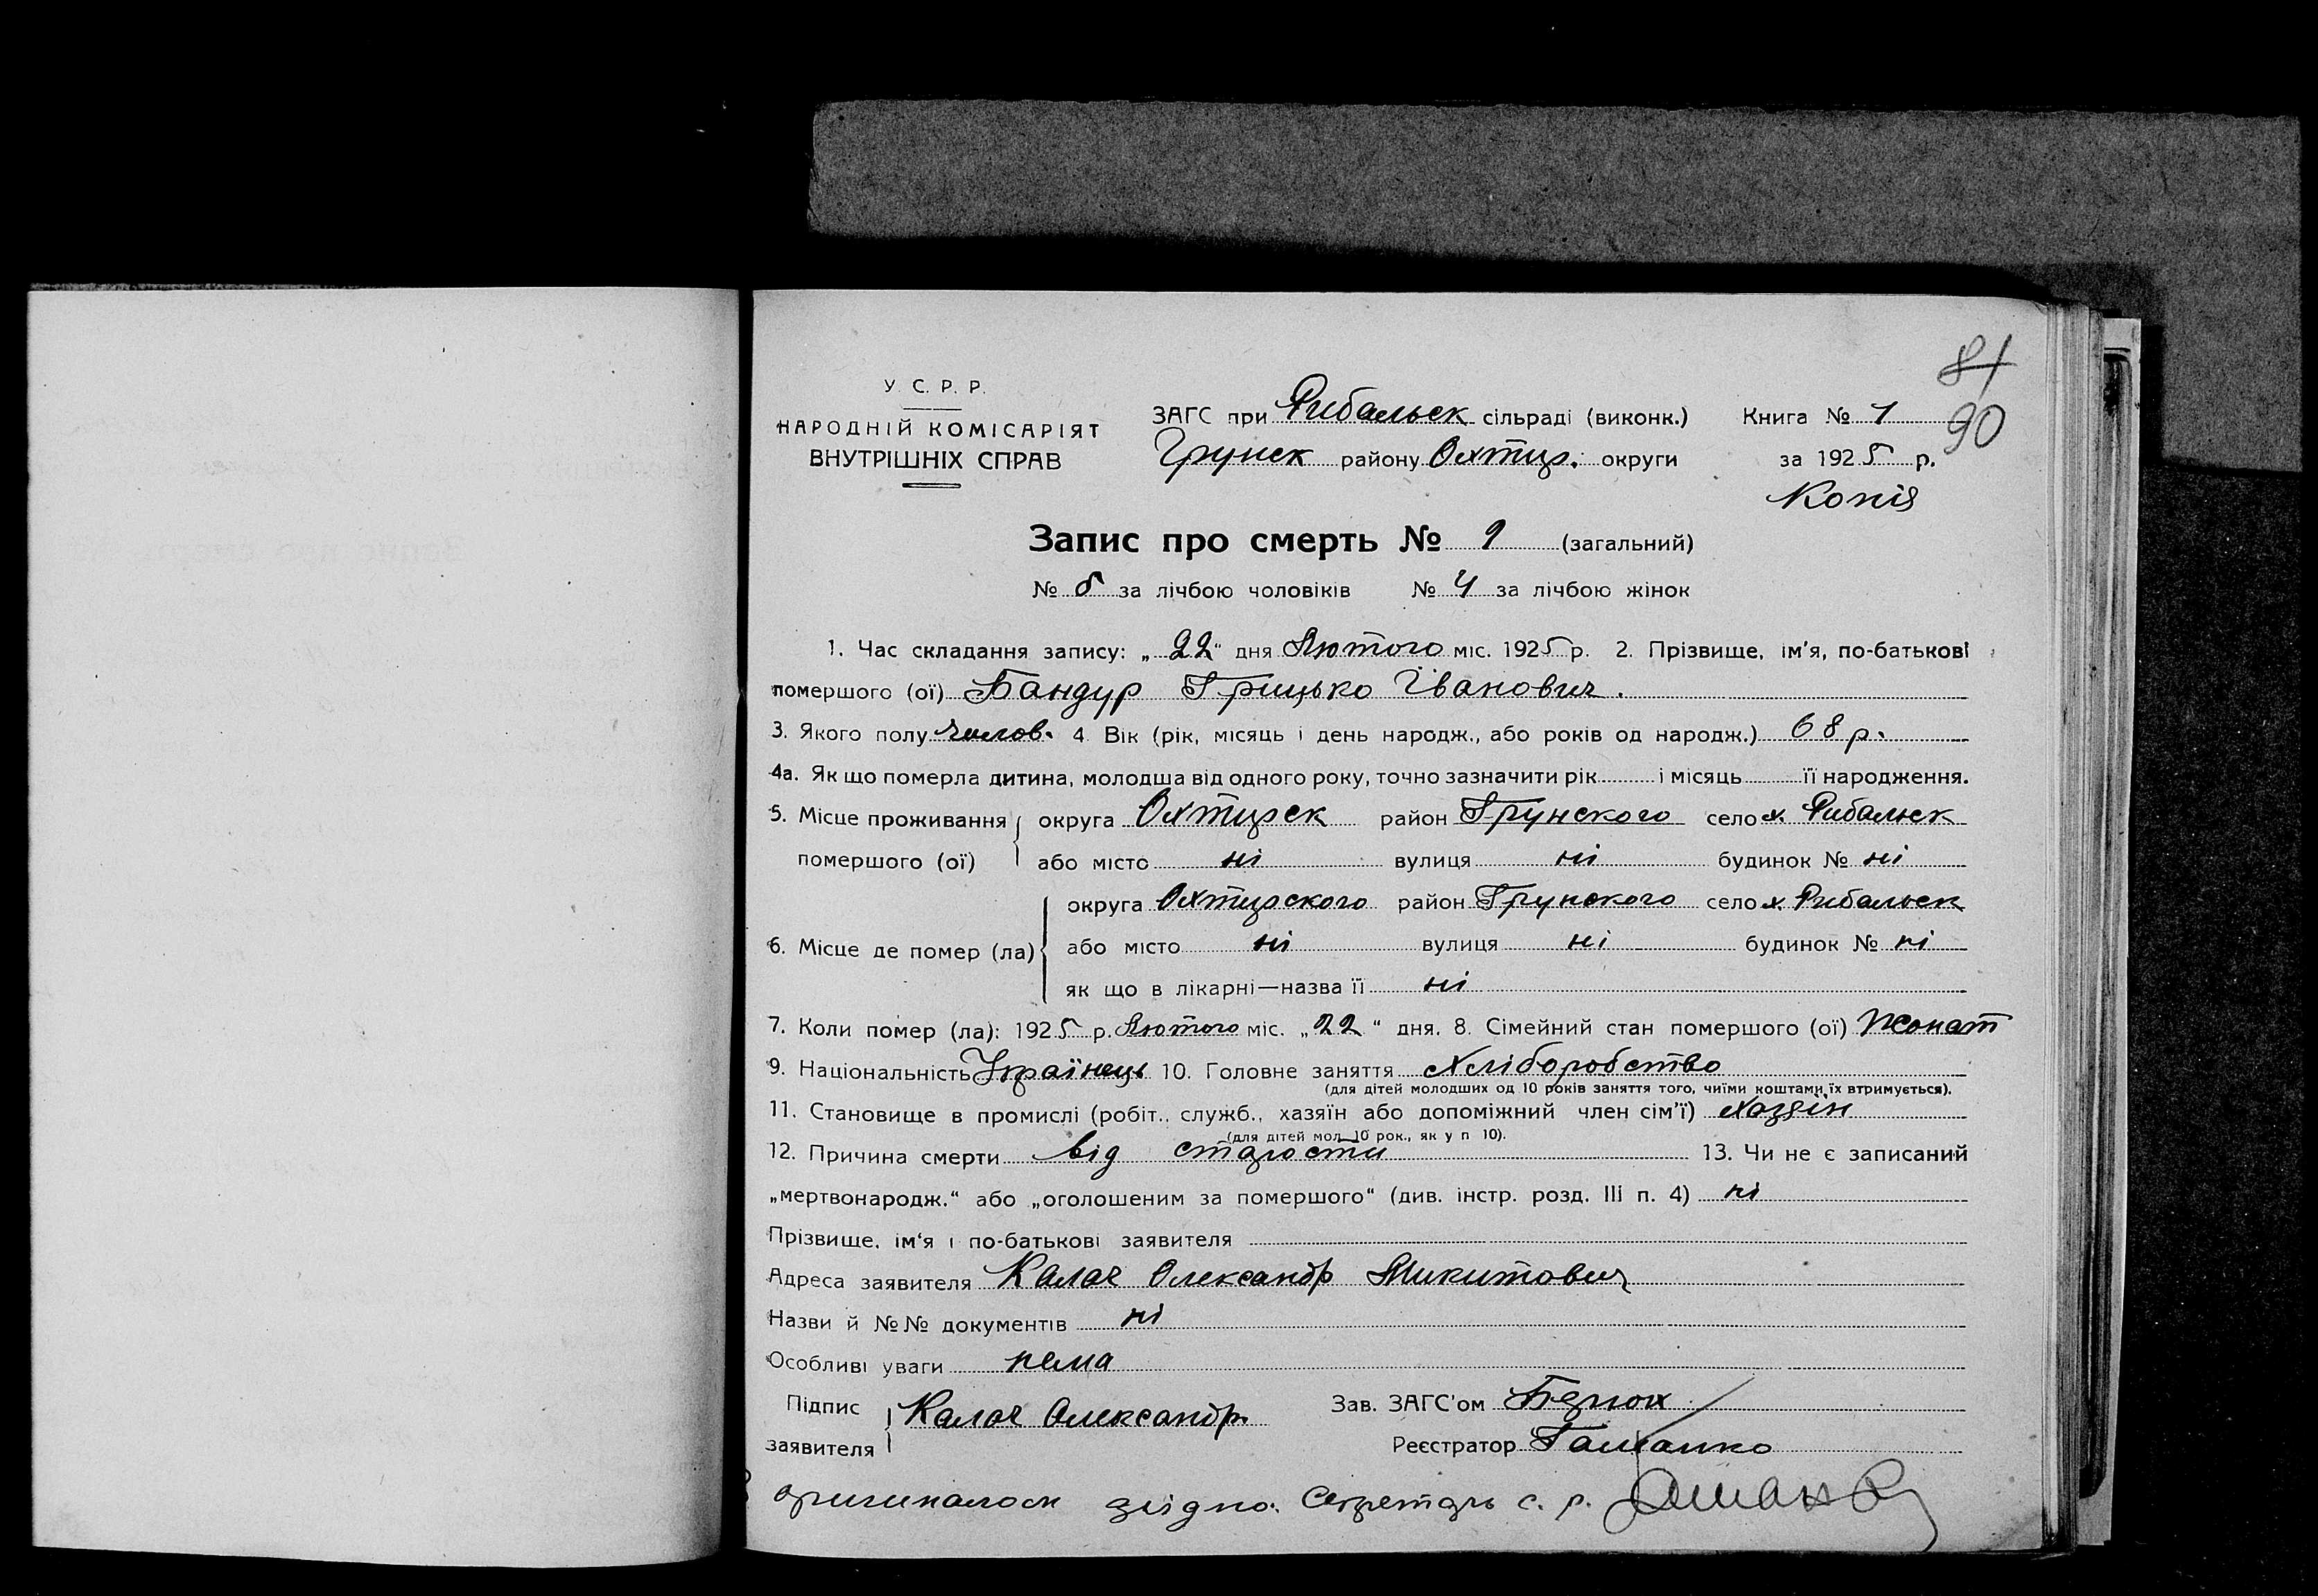 81
90
У. С. Р. Р.
НАРОДНІЙ КОМІСАРІЯТ
ВНУТРІШНІХ СПРАВ
ЗАГС при Рибальск сільраді (виконк.)
Грунск району Охтир. округи
Книга № 1
за 1925 р.
Копія
Запис про смерть № 9 (загальний)
№ 5 за лічбою чоловіків № 4 за лічбою жінок
1. Час складання запису: „22“ дня Лютого міс. 1925 р. 2. Прізвище, ім'я, по-батькові
помершого (ої) Бандур Грицько Іванович.
3. Якого полу чолов. 4. Вік (рік, місяць і день народж., або років од народж.) 68 р.
4а. Як що померла дитина, молодша від одного року, точно зазначити рік і місяць її народження.
5. Місце проживання помершого (ої) округа Охтирск район Грунского село х. Рибальск
або місто ні вулиця ні будинок № ні
6. Місце де помер (ла) округа Охтирского район Грунского село х. Рибальск
або місто ні вулиця ні будинок № ні
як що в лікарні—назва її ні
7. Коли помер (ла): 1925 р. Лютого міс. „22“ дня. 8. Сімейний стан помершого (ої) Жонат
9. Національність Українець 10. Головне заняття Хліборобство
(для дітей молодших од 10 років заняття того, чиїми коштами їх втримується).
11. Становище в промислі (робіт., служб., хазяїн або допоміжний член сім'ї) хазяїн
(для дітей мол. 10 рок., як у п 10).
12. Причина смерти від старости 13. Чи не є записаний
„мертвонародж.“ або „оголошеним за помершого“ (див. інстр. розд. III п. 4) ні
Прізвище, ім'я і по-батькові заявителя
Адреса заявителя Калач Олександр Микитович
Назви й №№ документів ні
Особливі уваги нема
Підпис заявителя Калач Олександр
Зав. ЗАГС'ом
Реєстратор
оригиналом згідно. Секретарь с. р.